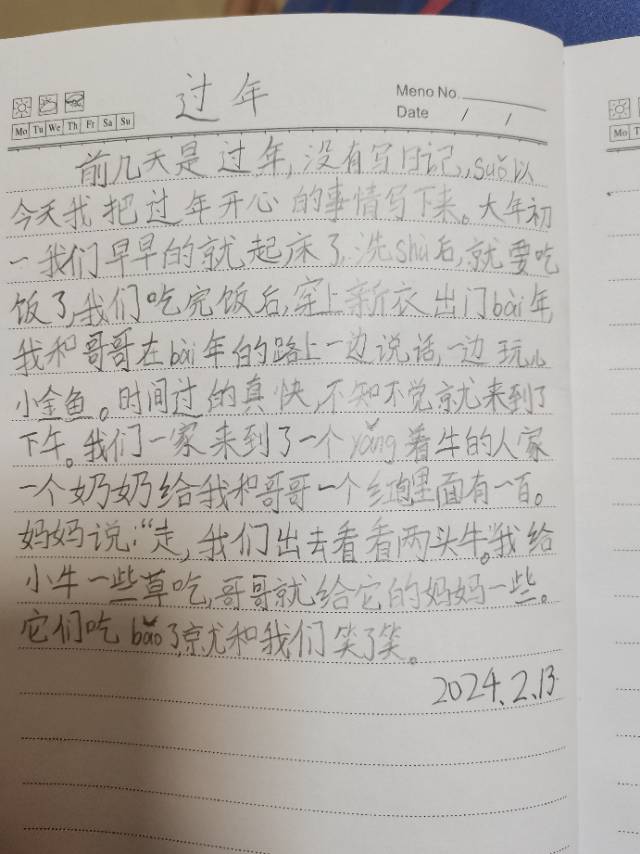 过年
Meno No.
Date / /
Mo Tu We Th Fr Sa Su
前几天是过年,没有写日记,suǒ以
今天我把过年开心的事情写下来。大年初
一我们早早的就起床了,洗shù后,就要吃
饭了,我们吃完饭后,穿上新衣出门bài年,
我和哥哥在bài年的路上一边说话,一边玩儿
小金鱼。时间过的真快,不知不觉就来到了
下午。我们一家来到了一个yǎng着牛的人家
一个奶奶给我和哥哥一个红包里面有一百。
妈妈说:“走,我们出去看看两头牛。”我给
小牛一些草吃,哥哥就给它的妈妈一些。
它们吃bǎo了,就和我们笑了笑。
2024.2.13
Mo T